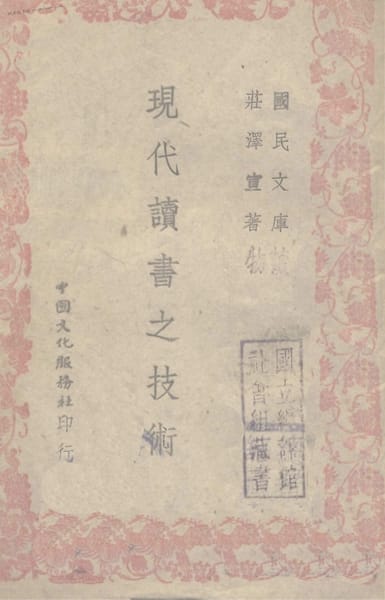 國民文庫
莊澤宣著
國立編譯館
社會組藏書
現代讀書之技術
中國文化服務社印行